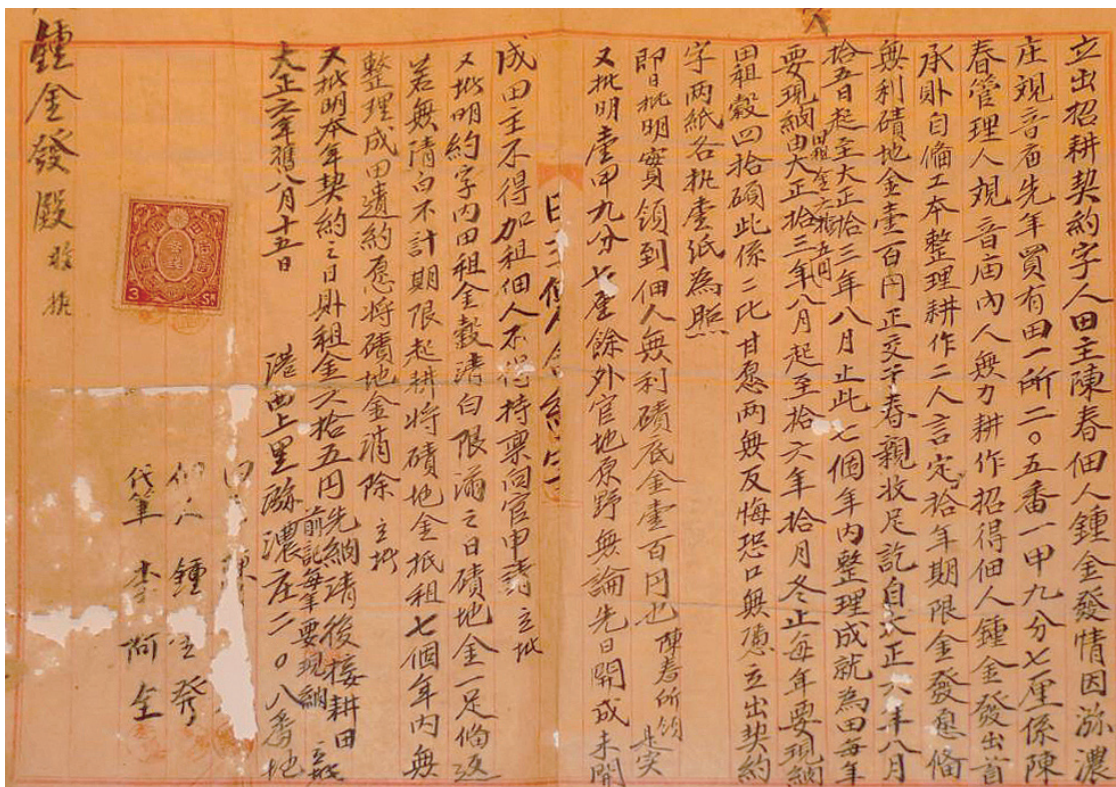 立出招耕契約字人田主陳春佃人鍾金發情因瀰濃
庄觀音庙先年買有田一所二〇五番一甲九分七厘係陳
春管理人觀音庙內人無力耕作招得佃人鍾金發出首
承㒷自偹工本整理耕作二人言定拾年期限金發愿偹
無利磧地金壹百円正交于春親收足訖自大正六年八月
拾五日起至大正拾三年八月止此七個年內整理成就為田每年
要現納田租金六拾五円由大正拾三年八月起至拾六年拾月冬止每年要現納
田租穀四拾碩此係二比甘愿兩無反悔恐口無憑立出契約
字兩紙各執壹紙為照
即日批明實領到佃人無利磧底金壹百円也 陳春所領 是实
又批明壹甲九分七厘餘外官地原野無論先日開成未開
成田主不得加租佃人不得持稟向官申請 立批
又批明約字內田租金穀清白限滿之日磧地金一足偹返
若無清白不計期限起耕將磧地金抵租七個年內無
整理成田遺約愿將磧地金消除 立批
又批明本年契約之日㒷租金六拾五円先納清後接耕田
前記每年要現納 立批
大正六年旧八月十五日
港西上里瀰濃庄二〇八番地
田 陳
佃人 鍾金發
代筆 李阿全
鍾金發殿 收執
3 Sn